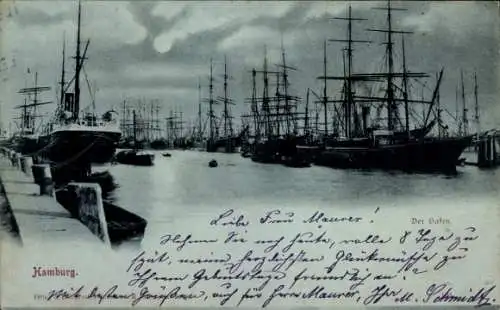 Liebe Frau Maurer!
Der Hafen.
Nehmen Sie mich heute, volle 8 Tage zu
spät, meine herzlichsten Glückwünsche zu
Hamburg.
Ihrem Geburtstage freundlich an?
Mit besten Grüßen, auch für Herrn Maurer, Ihr M. Schmidt.